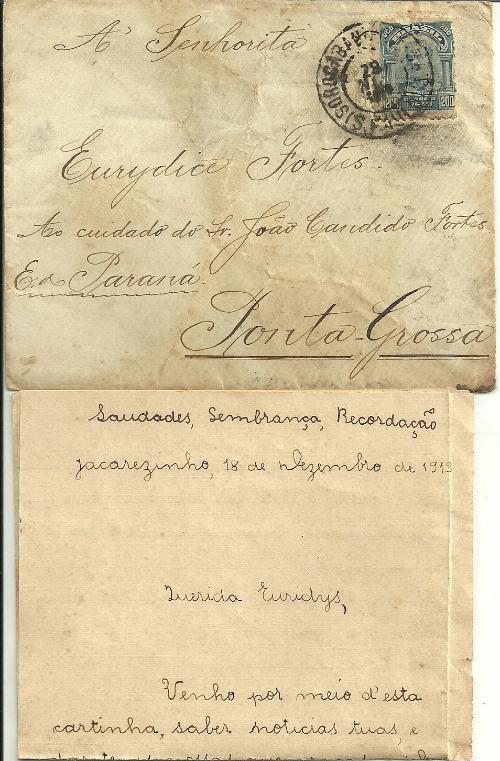 A' Senhorita
SOROCABA
200 200
Eurydice Fortes.
Ao cuidado do Sr. João Candido Fortes
E. do Paraná.
Ponta-Grossa
Saudades, Lembrança, Recordação
Jacarezinho, 18 de Dezembro de 1919
Querida Euridys,
Venho por meio d'esta
cartinha, saber noticias tuas, e